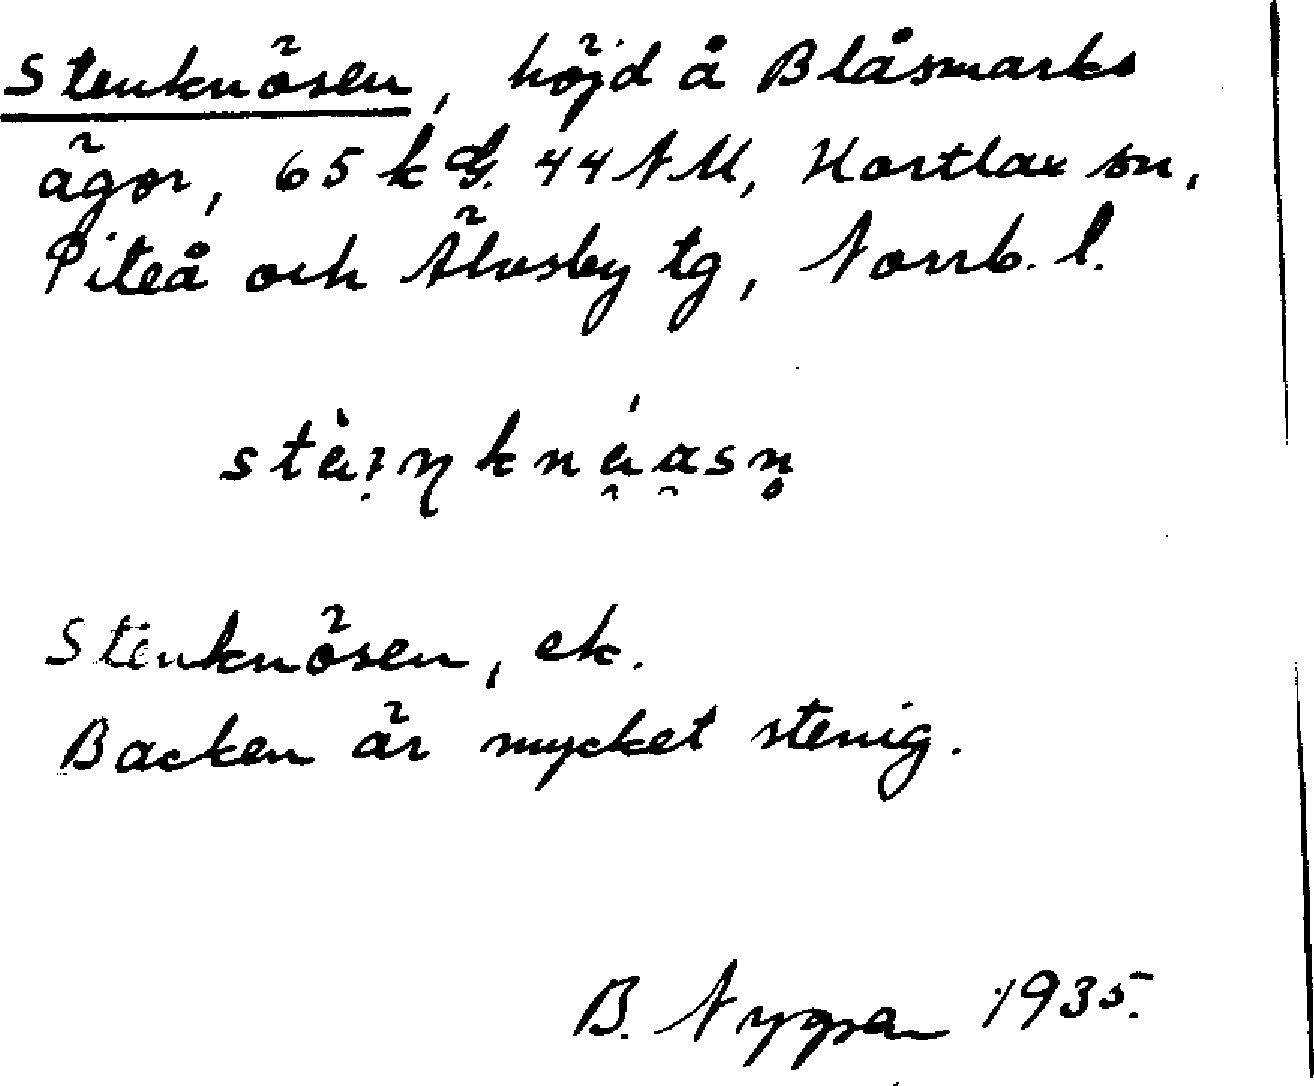 Stenknösen, höjd å Blåsmarks
ägor, 65 k G. 44 NM, Hortlax sn,
Piteå och Älvsby tg, Norrb. l.
Stenknösen, ek.
Backen är mycket stenig.
B. Nygren 1935.